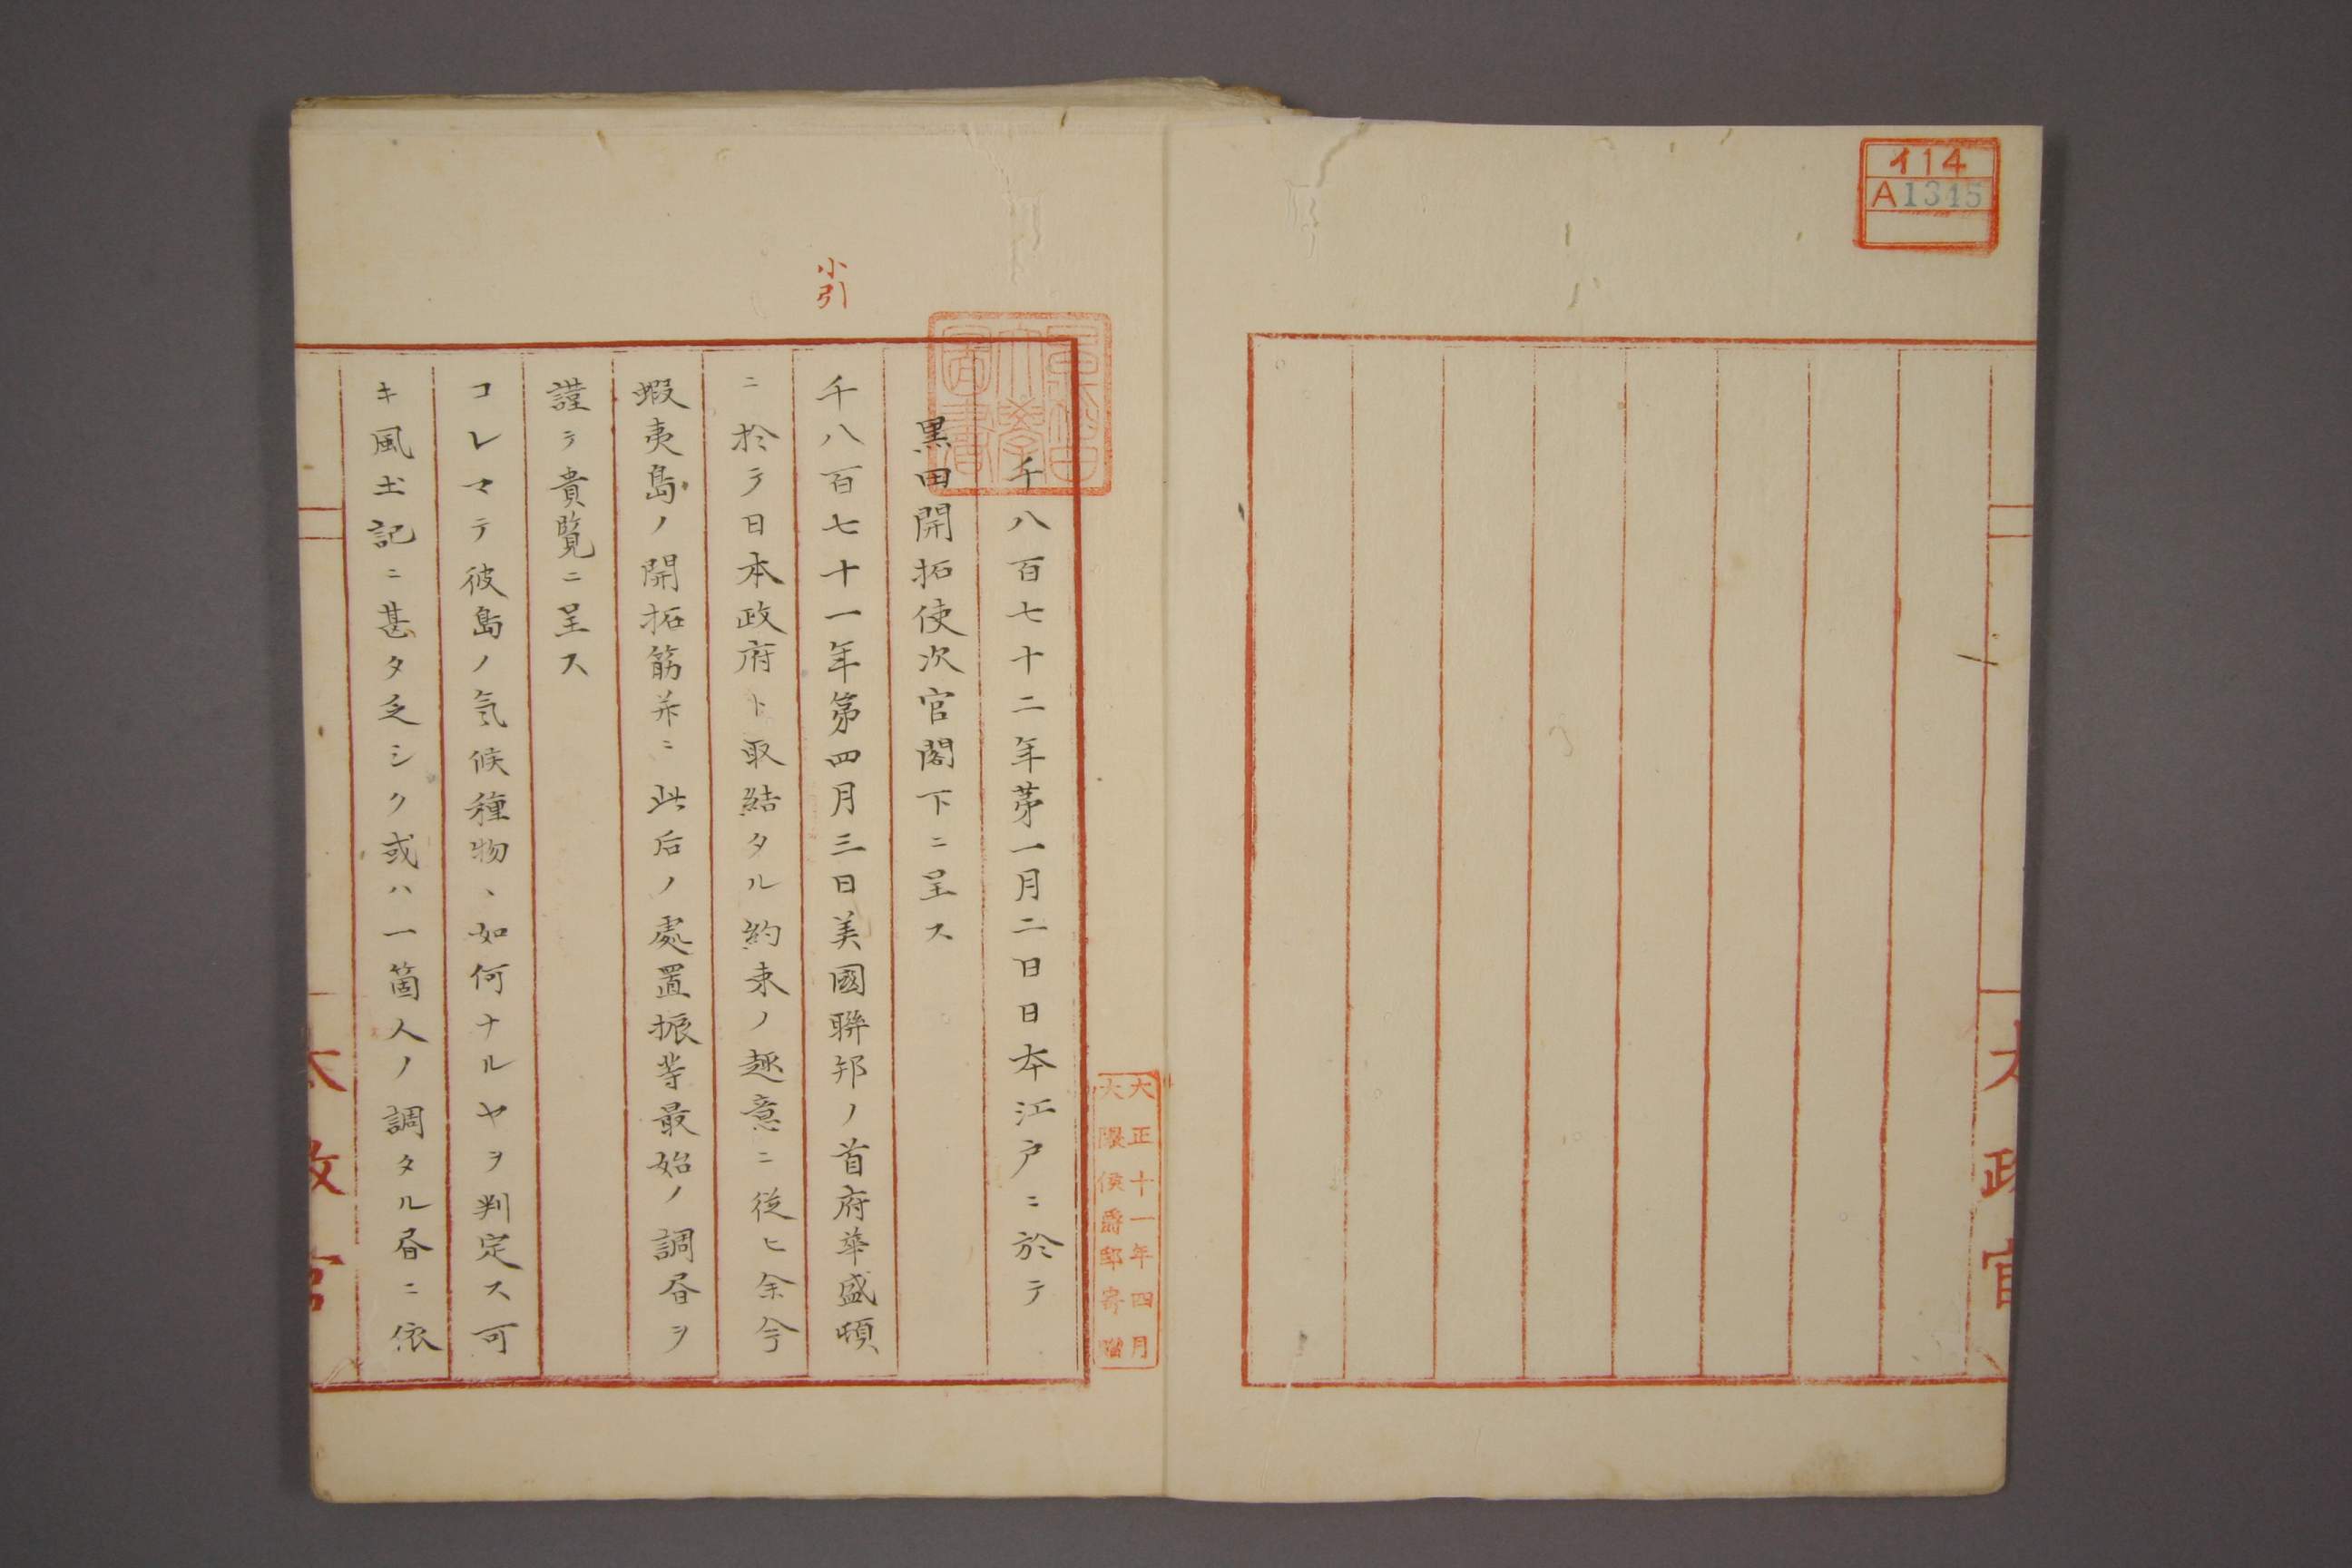 イ14
A1315
太政官
早稲田大學圖書
大正十一年四月
大隈侯爵邸寄贈
千八百七十二年苐一月二日日本江戸ニ於テ
黒田開拓使次官閣下ニ呈ス
小引
千八百七十一年第四月三日美國聯邦ノ首府華盛頓
ニ於テ日本政府ト取結タル約束ノ趣意ニ従ヒ余今
蝦夷島ノ開拓筋并ニ此后ノ處置振等最始ノ調昏ヲ
謹テ貴覧ニ呈ス
コレマテ彼島ノ気候種物、如何ナルヤヲ判定ス可
キ風土記ニ甚タ乏シク或ハ一箇人ノ調タル昏ニ依
太政官